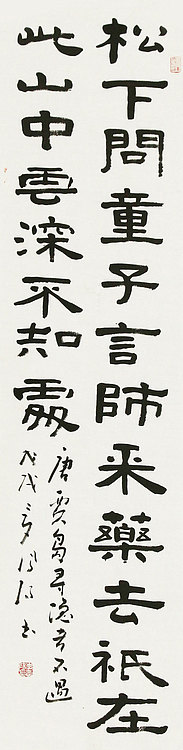 松下問童子言師采藥去祇在
此山中雲深不知處
唐賈島尋隱者不遇
戊戌書